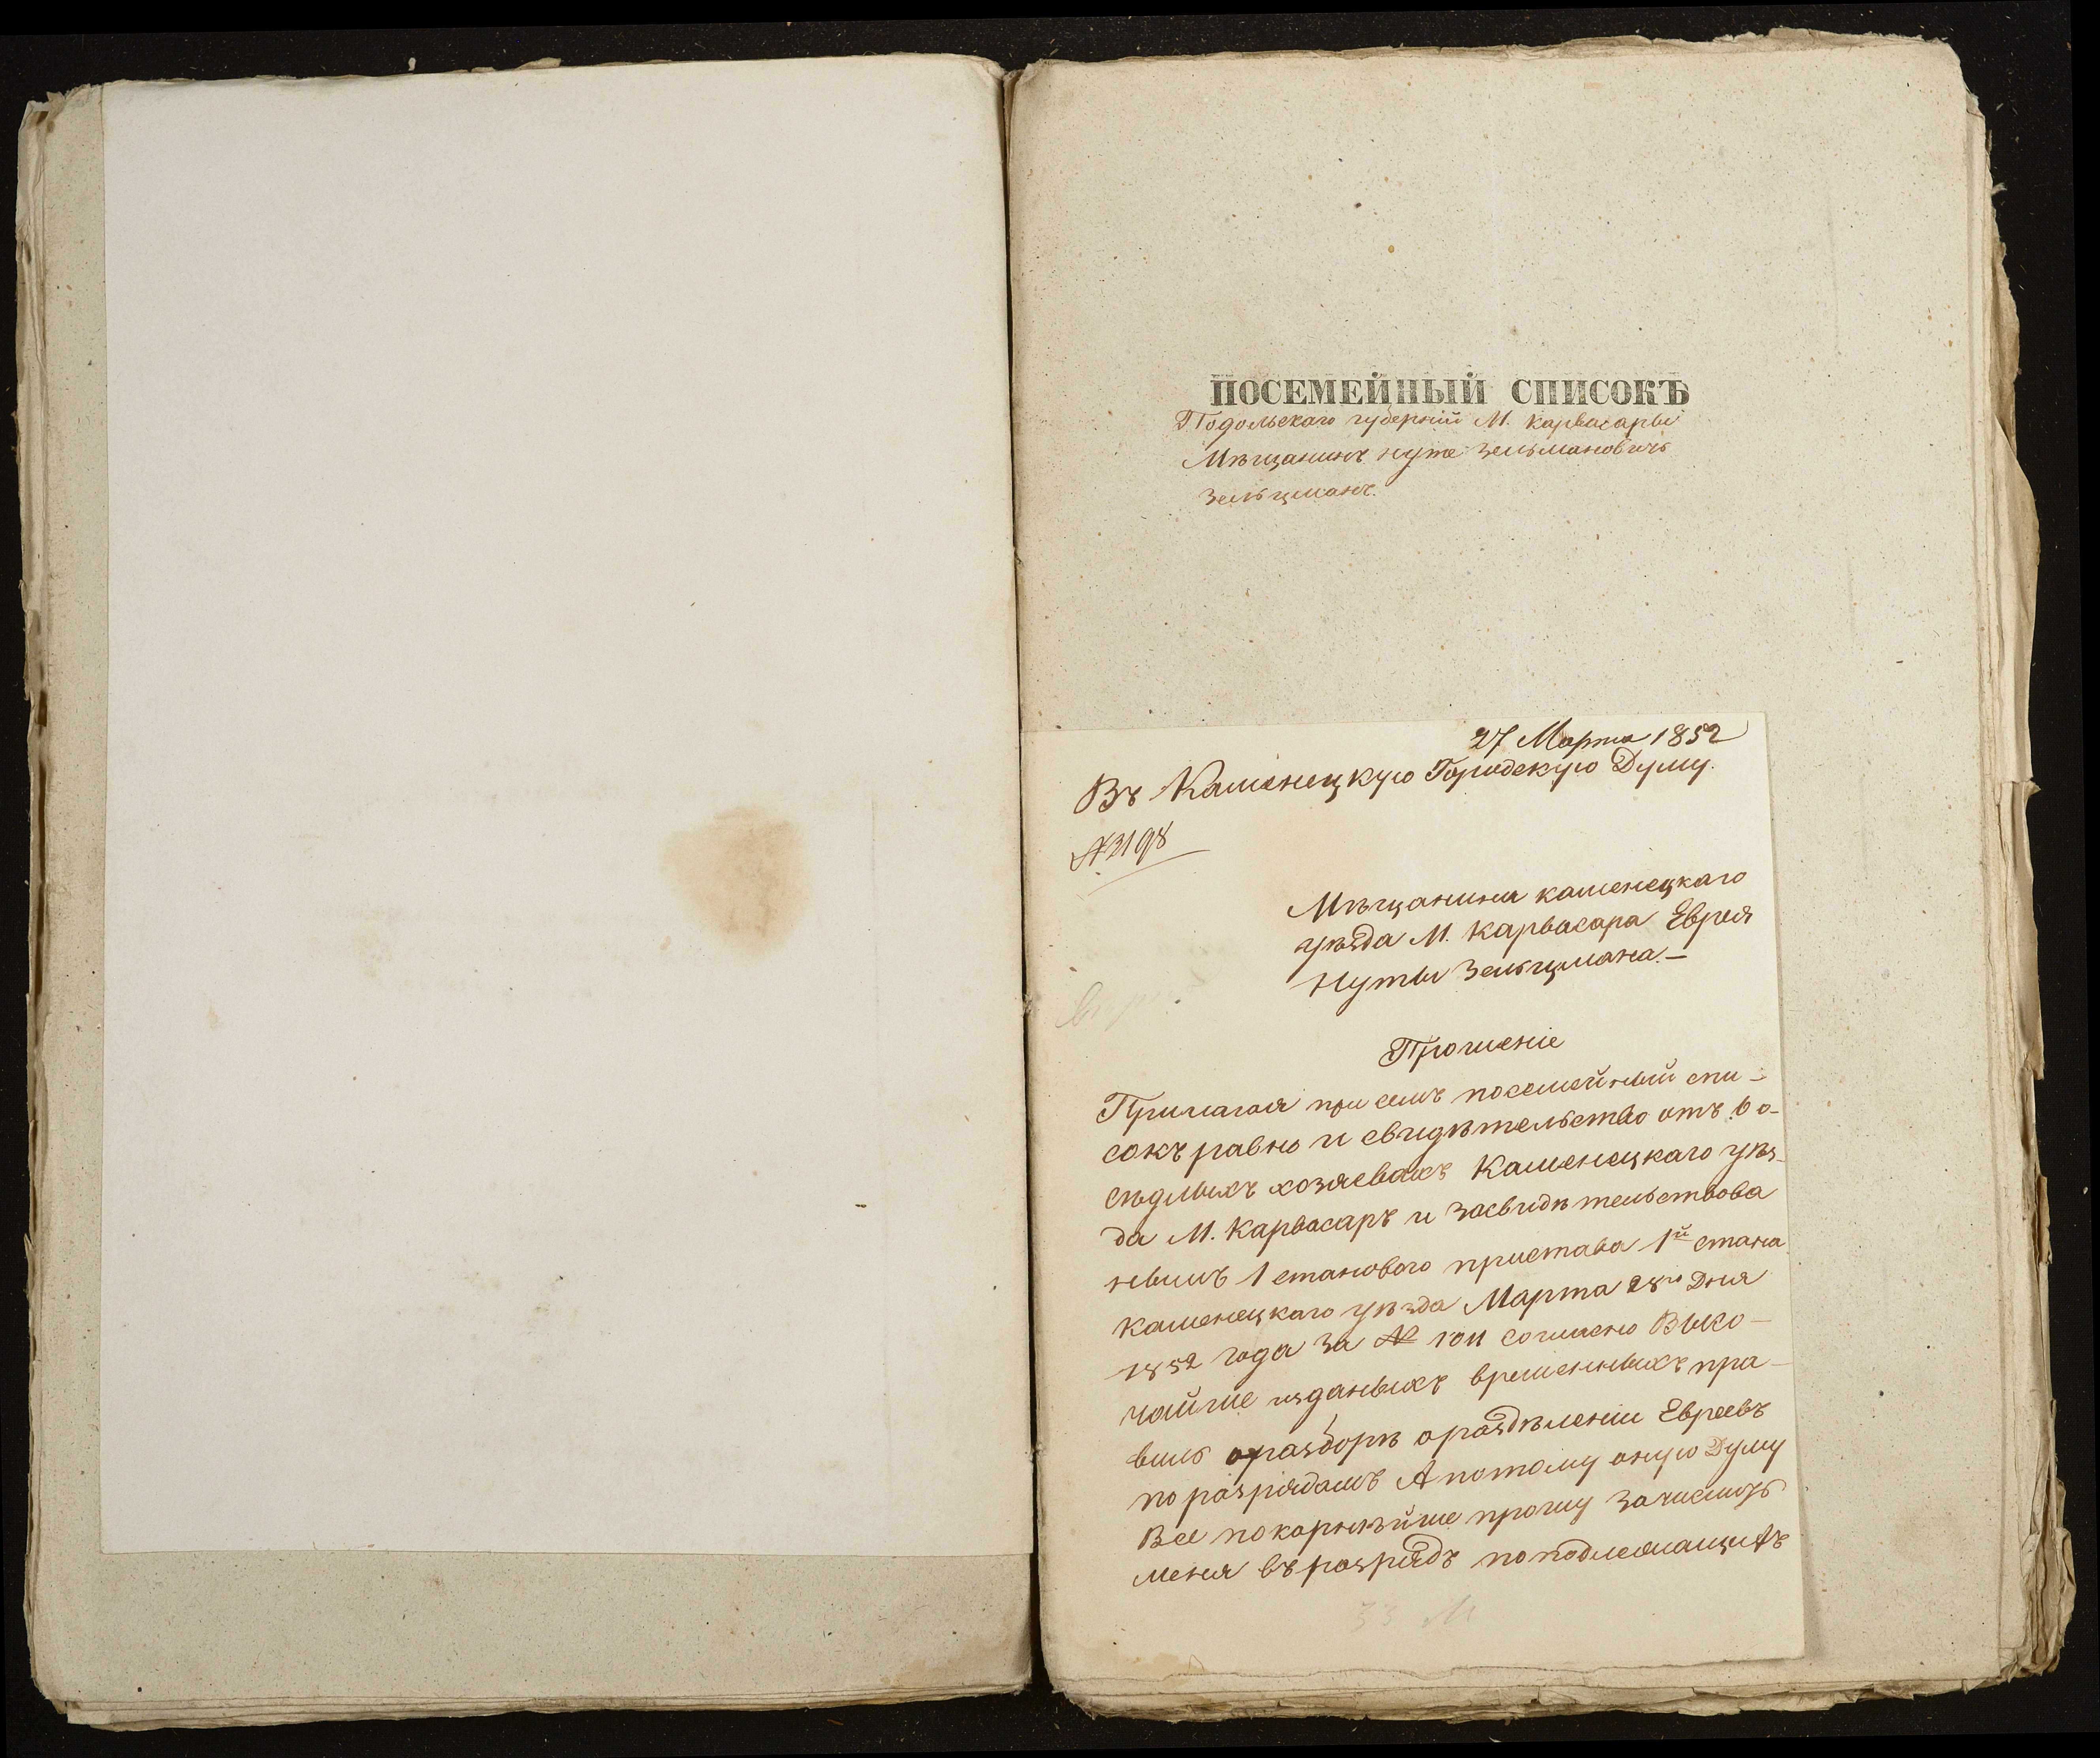 ПОСЕМЕЙНЫЙ СПИСОКЪ
Подольскаго губерніи М. Карвасары
Мѣщанинъ Нуте Зельмановичъ
Зельцманъ.
27 Марта 1852
Въ Каменецкую Городскую Думу.
№ 3198
Мѣщанина каменецкаго
уѣзда М. Карвасара Еврея
Нуты Зельцмана.—
Прошеніе
Прилагая при семъ посемейный спи-
сокъ равно и свидѣтельство отъ 6 о-
сѣдлыхъ хозяевахъ Каменецкаго уѣз-
да М. Карвасаръ и Засвидѣтельствова
нымъ 1 становаго пристава 1й стана
Каменецкаго уѣзда Марта 28го Дня
1852 года За № 1011 согласно Высо-
чайше изданыхъ временныхъ пра-
вилъ о разборѣ о раздѣленіи Евреевъ
по разрядамъ А потому оную Думу
Все покорнѣйше прошу Зачислить
меня въ разрядъ по подлежащих
33